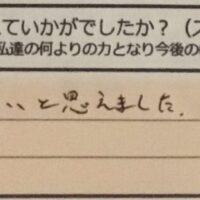 ていかがでしたか？（
私達の何よりの力となり今後の
いと思えました。